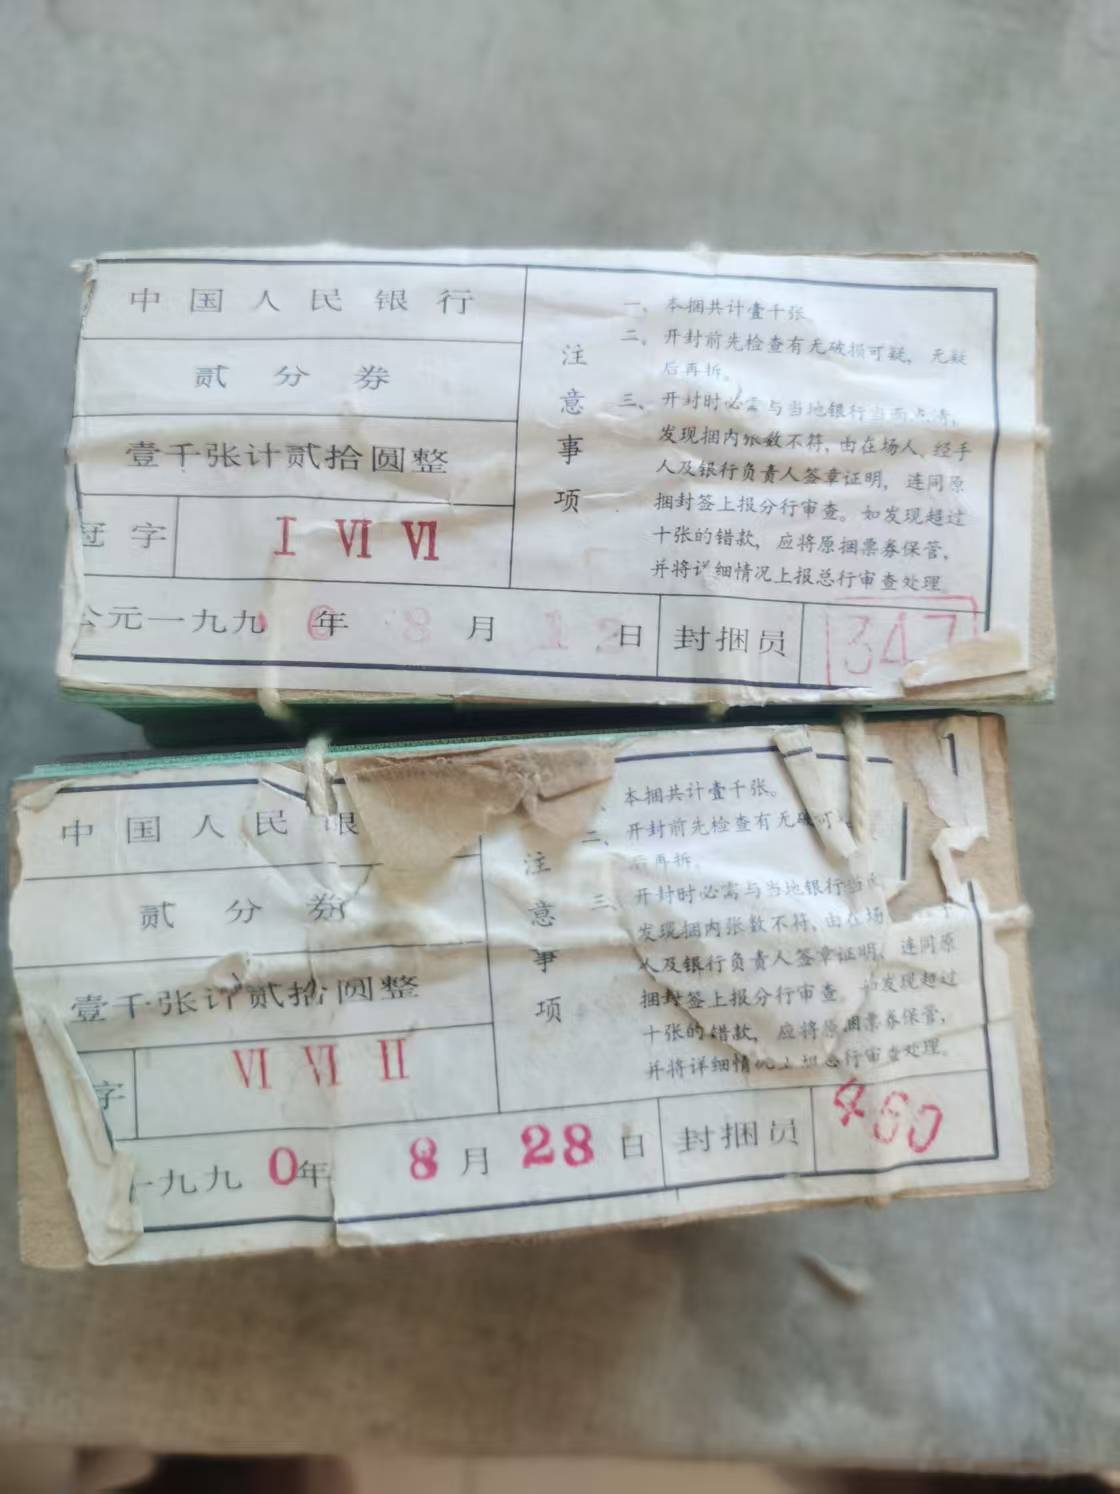 中国人民银行
贰分券
壹千张计贰拾圆整
冠字 I VI VI
公元一九九0年8月12日
封捆员 347
注意事项
一、本捆共计壹千张
二、开封前先检查有无破损可疑，无疑
后再拆。
三、开封时必需与当地银行当面点清，
发现捆内张数不符，由在场人、经手
人及银行负责人签章证明，连同原
捆封签上报分行审查。如发现超过
十张的错款，应将原捆票券保管，
并将详细情况上报总行审查处理
中国人民银
贰分券
壹千张计贰拾圆整
字 VI VI II
一九九0年8月28日
封捆员 460
注意事项
本捆共计壹千张。
二、开封前先检查有无破可
后再拆。
三、开封时必需与当地银行当
发现捆内张数不符，由在场
人及银行负责人签章证明，连同原
捆封签上报分行审查。如发现超过
十张的错款，应将原捆票券保管，
并将详细情况上报总行审查处理。